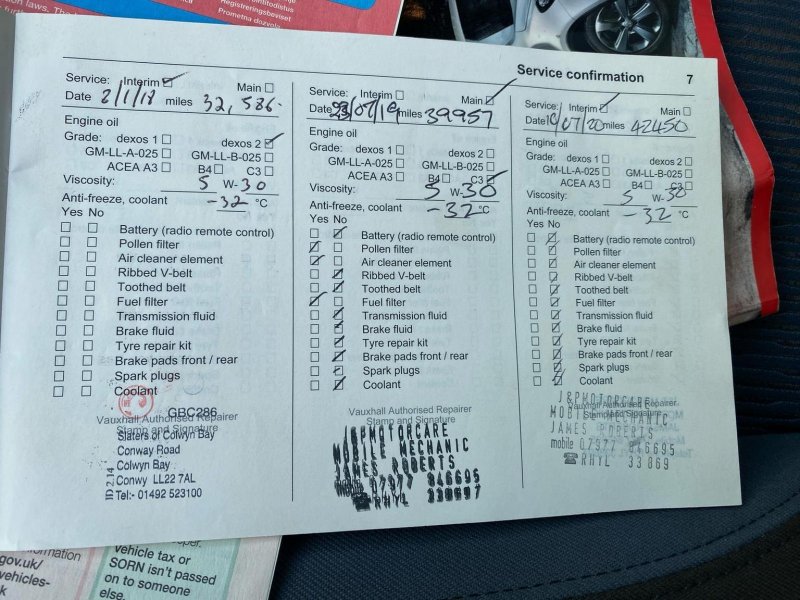 Registreringsbeviset
Prometna dozvola
Service confirmation 7
Service: Interim Main
Date 2/1/18 miles 32,586.
Engine oil
Grade: dexos 1 dexos 2
GM-LL-A-025 GM-LL-B-025
ACEA A3 B4 C3
Viscosity: 5 W-30
Anti-freeze, coolant -32 °C
Yes No
Battery (radio remote control)
Pollen filter
Air cleaner element
Ribbed V-belt
Toothed belt
Fuel filter
Transmission fluid
Brake fluid
Tyre repair kit
Brake pads front / rear
Spark plugs
Coolant
GBC286
Vauxhall Authorised Repairer
Stamp and Signature
Slaters of Colwyn Bay
Conway Road
Colwyn Bay
Conwy LL22 7AL
Tel:- 01492 523100
ID 2.14
Service: Interim Main
Date 23/07/19 miles 39957
Engine oil
Grade: dexos 1 dexos 2
GM-LL-A-025 GM-LL-B-025
ACEA A3 B4 C3
Viscosity: 5 W-30
Anti-freeze, coolant -32 °C
Yes No
Battery (radio remote control)
Pollen filter
Air cleaner element
Ribbed V-belt
Toothed belt
Fuel filter
Transmission fluid
Brake fluid
Tyre repair kit
Brake pads front / rear
Spark plugs
Coolant
Vauxhall Authorised Repairer
Stamp and Signature
J&PMOTORCARE
MOBILE MECHANIC
JAMES ROBERTS
07977 846695
RHYL
Service: Interim Main
Date 10/07/20 miles 42450
Engine oil
Grade: dexos 1 dexos 2
GM-LL-A-025 GM-LL-B-025
ACEA A3 B4 C3
Viscosity: 5 W-30
Anti-freeze, coolant -32 °C
Yes No
Battery (radio remote control)
Pollen filter
Air cleaner element
Ribbed V-belt
Toothed belt
Fuel filter
Transmission fluid
Brake fluid
Tyre repair kit
Brake pads front / rear
Spark plugs
Coolant
J&PMOTORCARE
Vauxhall Authorised Repairer
Stamp and Signature
MOBILE MECHANIC
JAMES ROBERTS
mobile 07977 846695
RHYL
gov.uk/
vehicles-
vehicle tax or
SORN isn't passed
on to someone
else.